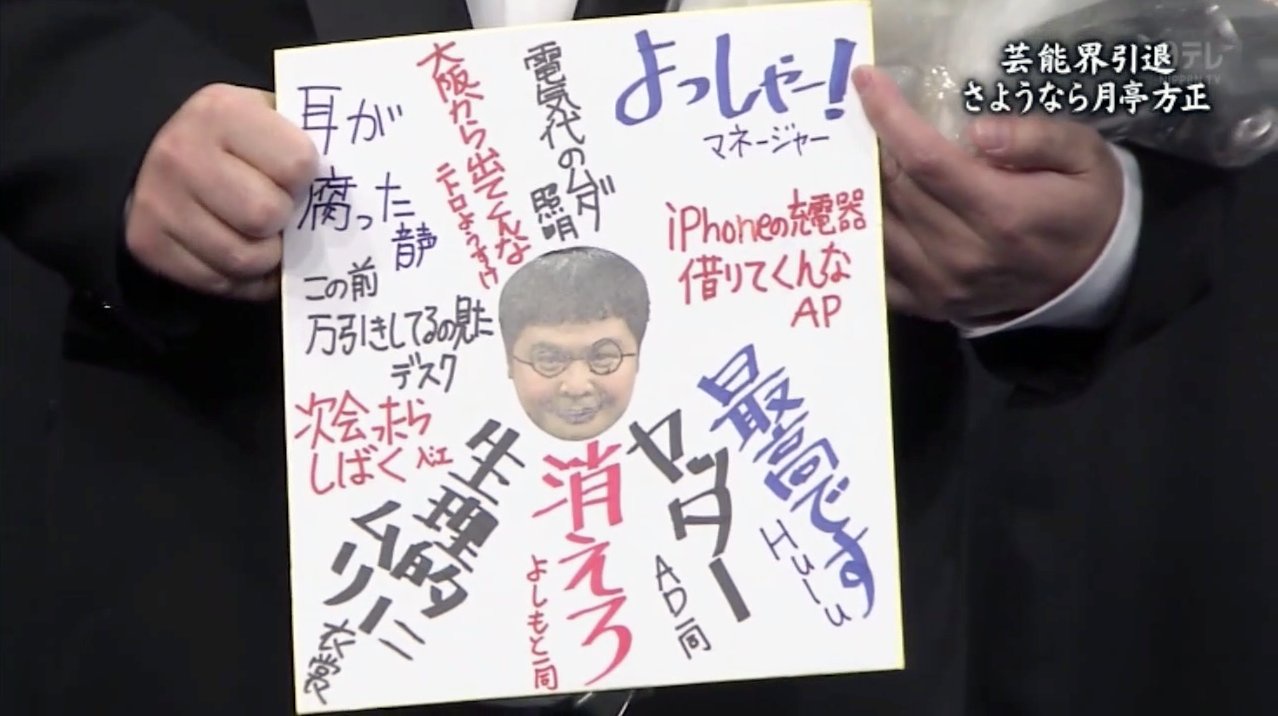 芸能界引退
さようなら月亭方正
日テレ
NIPPON TV
よっしゃー!
マネージャー
電気代のムダ
照明
大阪から出てくんな
ニトロようすけ
耳が
腐った
音声
iPhoneの充電器
借りてくんな
AP
この前
万引きしてるの見た
デスク
次会ったら
しばく 入江
最高です
Hulu
ヤッター
AD一同
消えろ
よしもと一同
生理的に
ムリー
衣裳